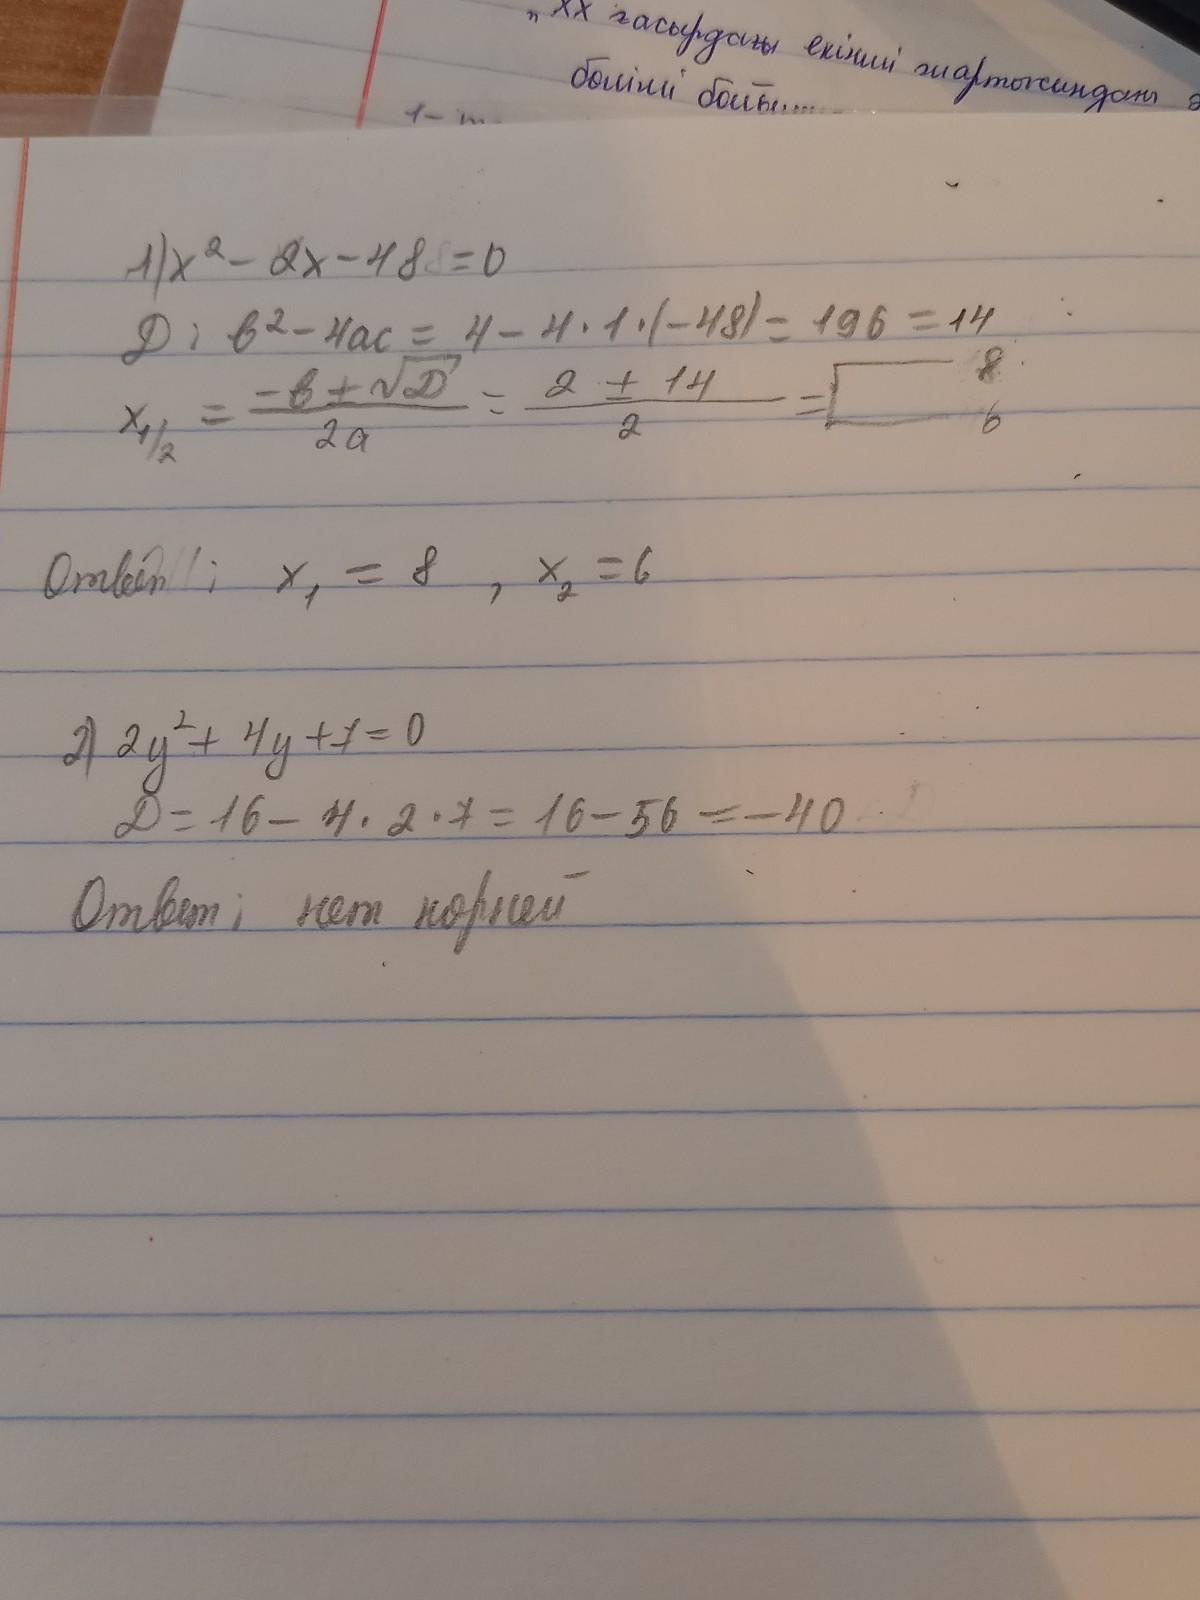 „XX ғасырдағы екінші жартысындағы
бөлімі бойы....
1) x² - 2x - 48 = 0
D: b² - 4ac = 4 - 4 · 1 · (-48) = 196 = 14
x₁/₂ = (-b ± √D)/2a = (2 ± 14)/2 = [ 8
6
Ответ: x₁ = 8 , x₂ = 6
2) 2y² + 4y + 7 = 0
D = 16 - 4 · 2 · 7 = 16 - 56 = -40
Ответ: нет корней